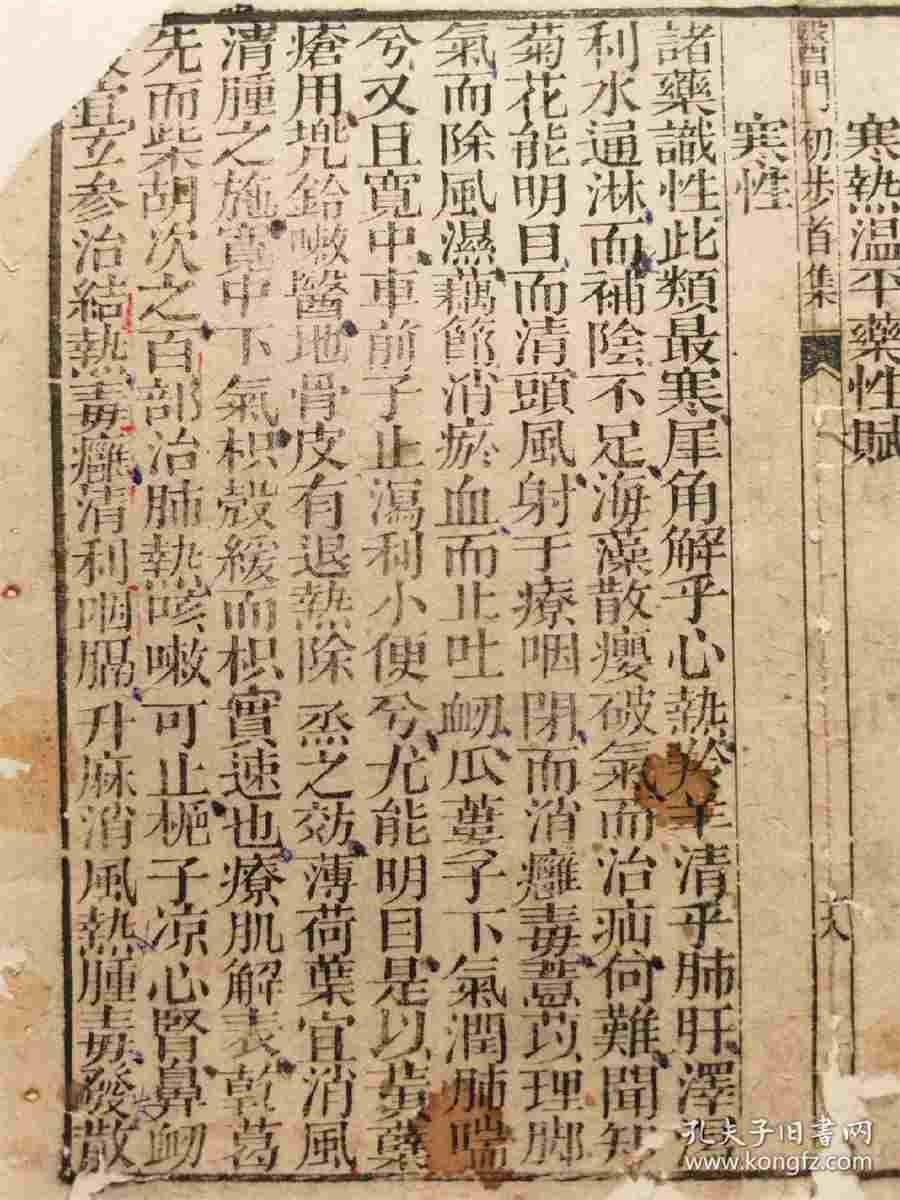 寒熱温平藥性賦
醫門初步首集
寒性
諸藥識性此類最寒犀角解乎心熱羚羊清乎肺肝澤瀉
利水通淋而補陰不足海藻散癭破氣而治疝何難聞知
菊花能明目而清頭風射干療咽閉而消癰毒薏苡理脚
氣而除風濕藕節消瘀血而止吐衂瓜蔞子下氣潤肺喘
兮又且寛中車前子止瀉利小便兮尤能明目是以黄蘗
瘡用兠鈴嗽醫地骨皮有退熱除烝之効薄荷葉宜消風
清腫之施寛中下氣枳殼緩而枳實速也療肌解表乾葛
先而柴胡次之百部治肺熱咳嗽可止梔子凉心腎鼻衂
宜玄参治結熱毒癰清利咽膈升麻消風熱腫毒發散
孔夫子旧书网
www.kongfz.com